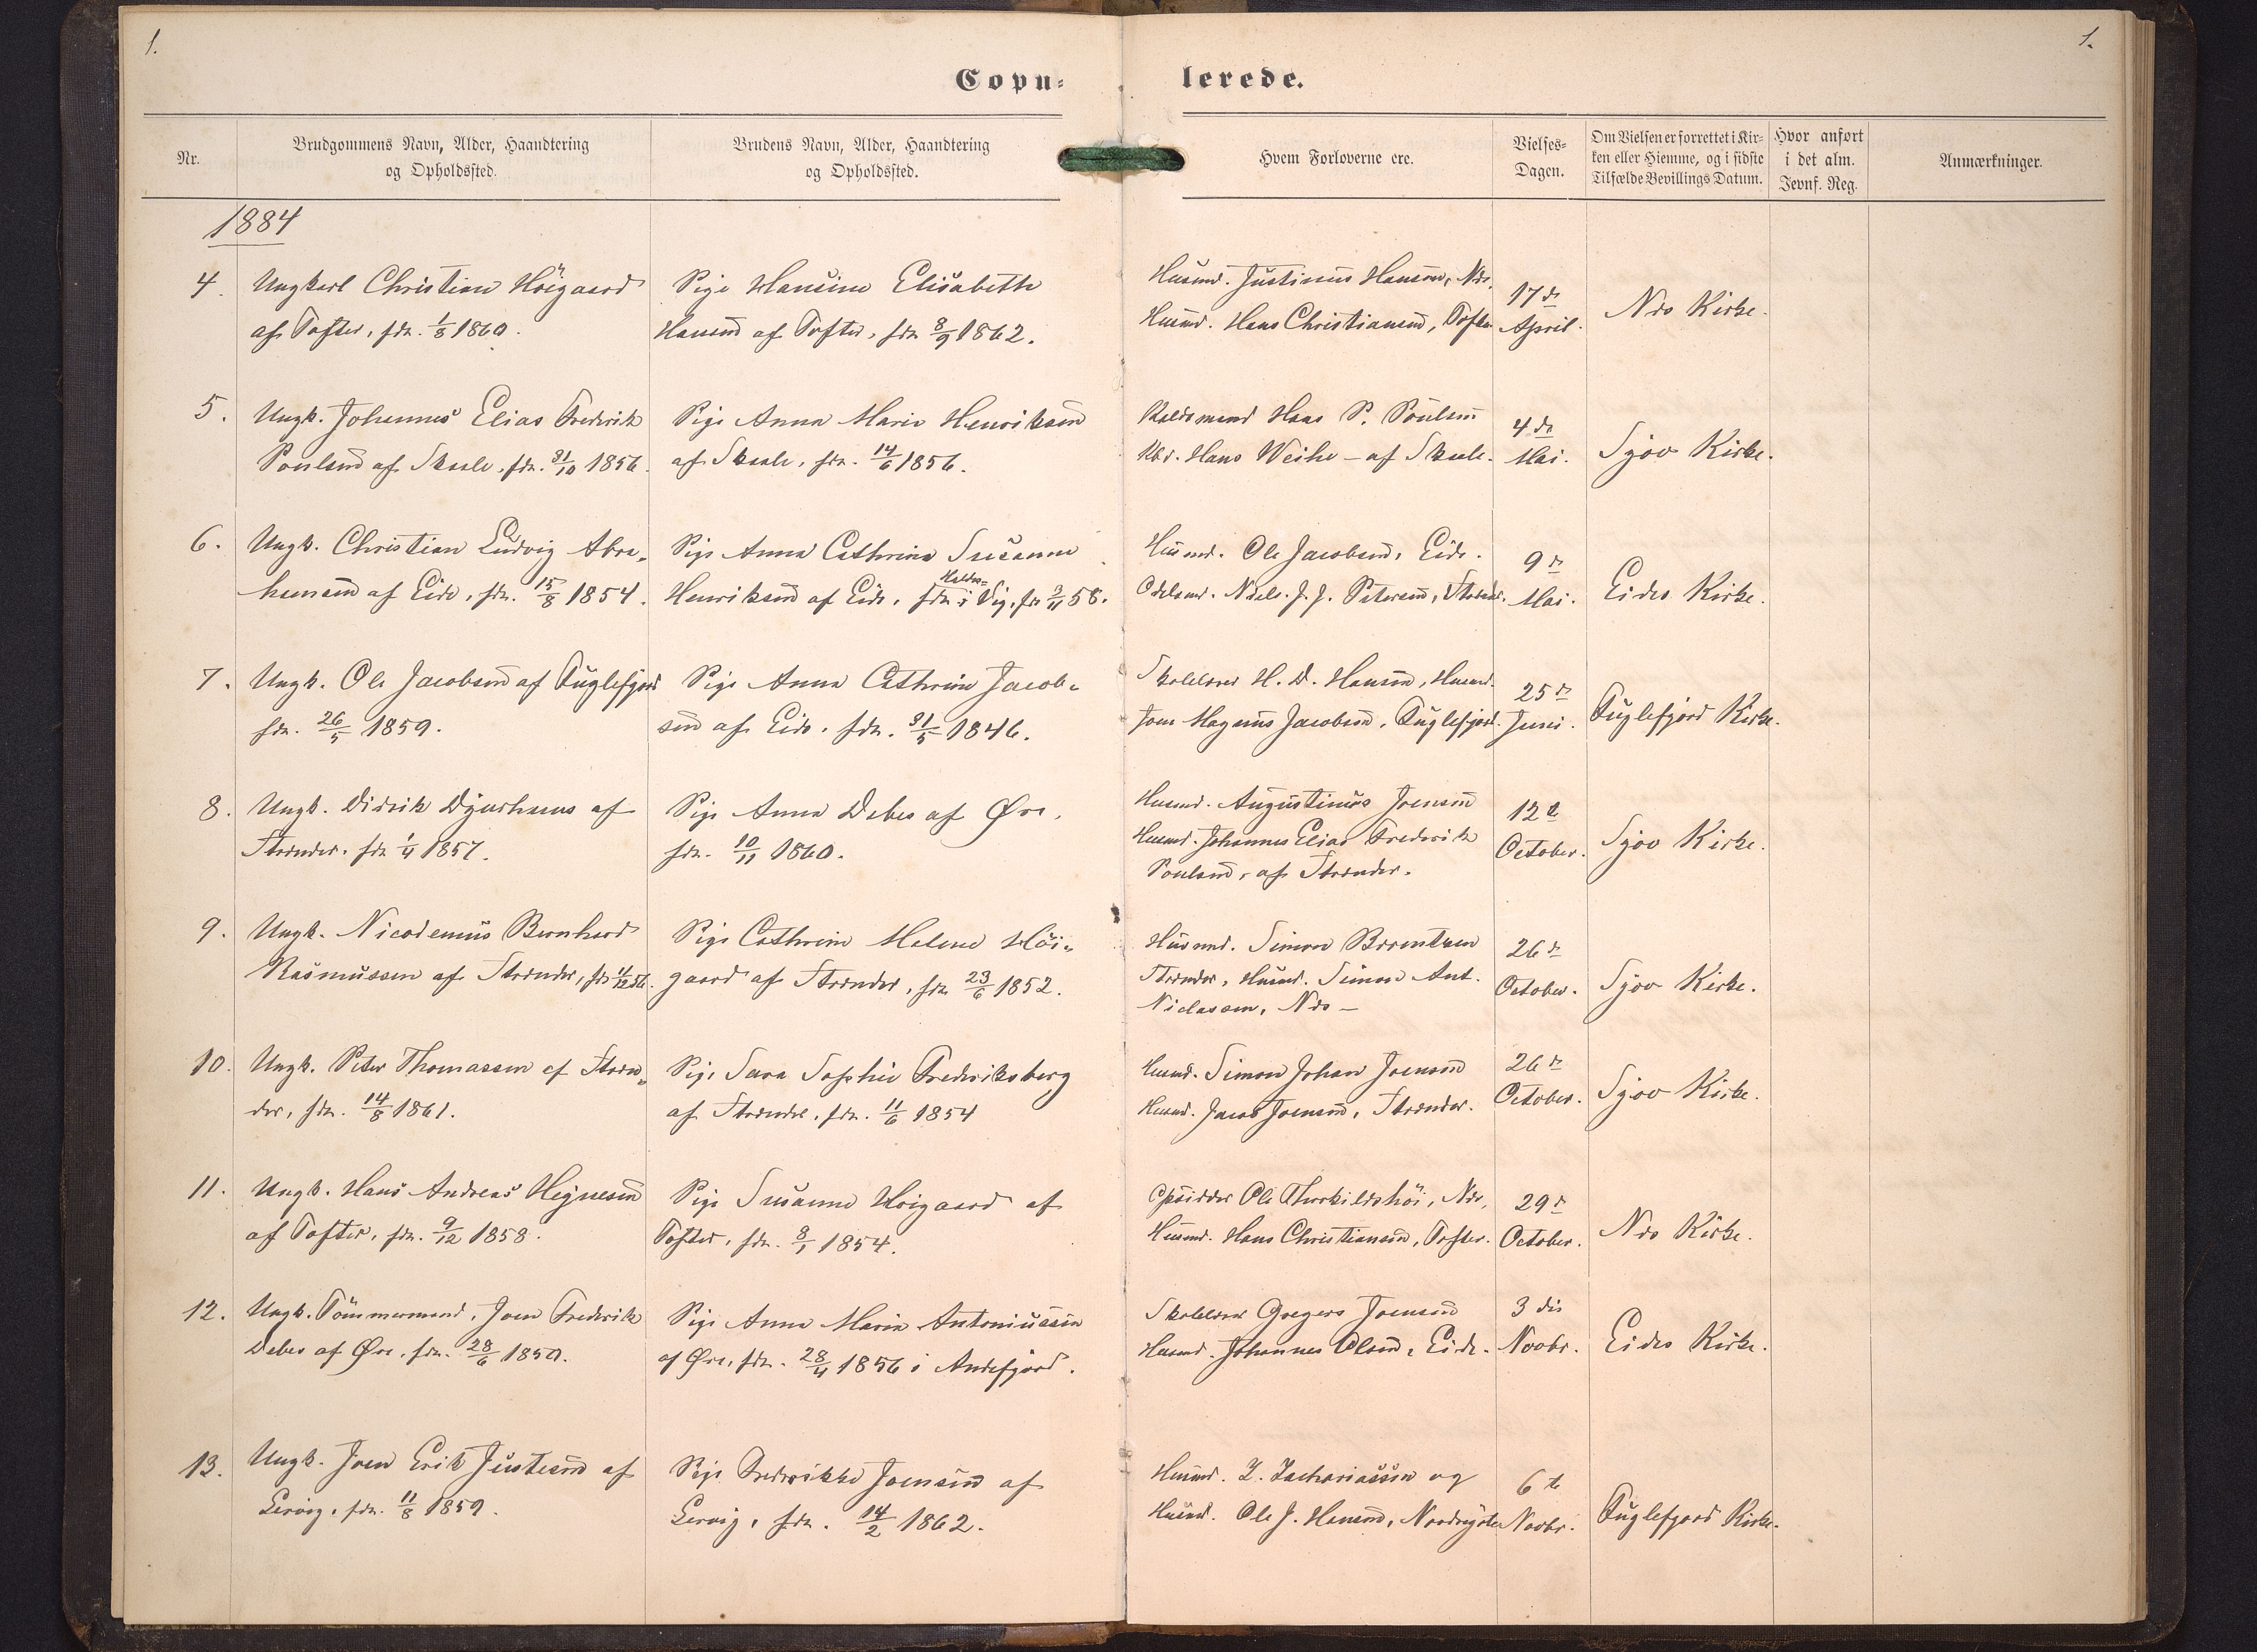 1.
1.
Copu-
lerede.
Nr.
Brudgommens Navn, Alder, Haandtering
og Opholdssted.
Brudens Navn, Alder, Haandtering
og Opholdssted.
Hvem Forloverne ere.
Vielses-
Dagen.
Om Vielsen er forrettet i Kir-
ken eller Hiemme, og i sidste
Tilfælde Bevillings Datum.
Hvor anført
i det alm.
Jevnf. Reg.
Anmærkninger.
1884
4.
Ungkarl Christian Höigaard
af Tofter, fdn. 1/8 1860.
Pige Hansine Elisabeth
Hansen af Tofter, fdn 8/9 1862.
Husmd. Justinus Hansen, Nes,
Husmd. Hans Christiansen, Tofter
17de
April.
Nes Kirke.
5.
Ungk. Johannes Elias Frederik
Poulsen af Skaale, fdn. 31/10 1856.
Pige Anna Marie Henriksen
af Skaale, fdn. 14/6 1856.
Hans P. Poulsen
Kbd. Hans Weihe - af Skaale.
4de
Mai.
Sjov Kirke.
6.
Ungk. Christian Ludvig Abra-
hamsen af Eide, fdn. 15/8 1854.
Pige Anna Cathrina Susanne
Henriksen af Eide, fdn i Vig, fdn 3/11 58.
Husmd. Ole Jacobsen, Eide.
Odelsmd. Niels J. J. Petersen,
9de
Mai.
Eides Kirke.
7.
Ungk. Ole Jacobsen af Fuglefjord
fdn. 26/5 1859.
Pige Anna Cathrine Jacob-
sen af Eide, fdn. 31/5 1846.
Skolelærer H. D. Hansen, Husmd.
Joen Magnus Jacobsen, Fuglefjord.
25de
Juni.
Fuglefjord Kirke.
8.
Ungk. Didrik Djurhuus af
Strender, fdn 1/4 1857.
Pige Anna Debes af Øre,
fdn. 10/11 1860.
Husmd. Augustinus Joensen
Husmd. Johannes Elias Frederik
Poulsen, af Strender.
12te
October.
Sjov Kirke.
9.
Ungk. Nicodemus Bernhard
Rasmussen af Strender, fdn 4/12 56.
Pige Cathrine Malene Höi-
gaard af Strender, fdn 23/6 1852.
Husmd. Simon Berentsen
Strender, Husmd. Simon Ant.
Niclasen, Nes -
26de
October.
Sjov Kirke.
10.
Ungk. Peter Thomassen af Stren-
der, fdn. 14/8 1861.
Pige Sara Sophie Frederiksberg
af Strender, fdn. 11/6 1854
Husmd. Simon Johan Joensen
Husmd. Jacob Joensen, Strender.
26de
October.
Sjov Kirke.
11.
Ungk. Hans Andreas Hejnesen
af Tofter, fdn. 9/12 1858.
Pige Susanne Höigaard af
Tofter, fdn. 8/1 1854.
Opsidder Ole Thorkildshöi, Nes,
Husmd. Hans Christiansen, Tofter.
29de
October.
Nes Kirke.
12.
Ungk. Tömmermand, Joen Frederik
Debes af Øre, fdn. 28/6 1850.
Pige Anna Maria Antoniussen
af Øre, fdn. 28/4 1856 i Andefjord.
Skolelærer Gregers Joensen
Husmd. Johannes Olsen, Eide.
3die
Novbr.
Eides Kirke.
13.
Ungk. Joen Erik Justesen af
Lervig, fdn. 11/8 1859.
Pige Frederikke Joensen af
Lervig, fdn. 14/2 1862.
Husmd. Z. Zachariassen og
Husmd. Ole J. Hansen, Nordregöte
6te
Novbr.
Fuglefjord Kirke.